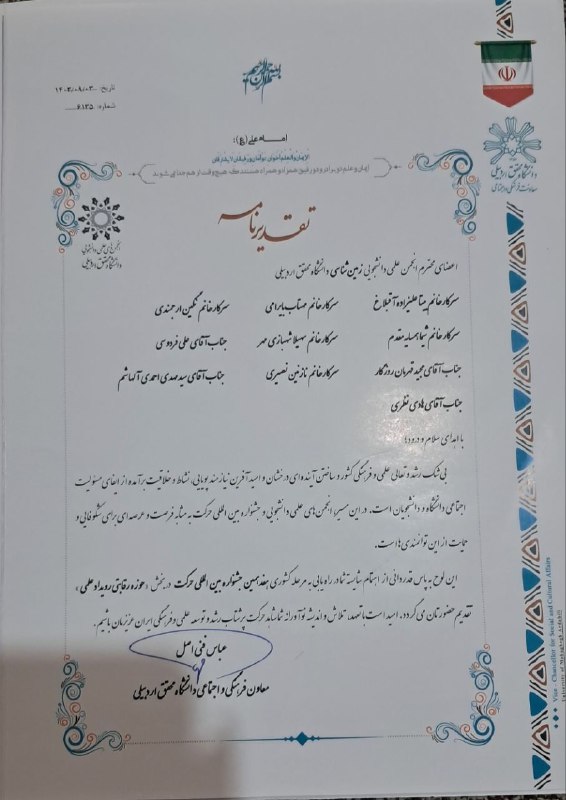 بسم الله الرحمن الرحیم
تاریخ: ۱۴۰۳/۰۸/۰۳
شماره: ۶۱۳۵
امام علی (ع):
ایمان و علم دو برادر و دو رفیق همراه و همراه هستند که هیچ وقت از هم جدا نمی شوند
دانشگاه محقق اردبیلی
معاونت فرهنگی و اجتماعی
انجمن های علمی دانشجویی
دانشگاه محقق اردبیلی
تقدیرنامه
اعضای محترم انجمن علمی دانشجویی زمین شناسی دانشگاه محقق اردبیلی
سرکار خانم بیتا علیزاده آقبلاغ سرکار خانم مهتاب بایرامی سرکار خانم نگین ارجمندی
سرکار خانم شیما همسایه مقدم سرکار خانم سهیلا شهبازی مهر جناب آقای علی فردوسی
جناب آقای مجید قهرمان روزگار سرکار خانم نازنین نصیری جناب آقای سید مهدی احمدی آلهاشم
جناب آقای هادی نظری
با اهدای سلام و درود؛
بی شک رشد و تعالی علمی و فرهنگی کشور و ساختن آینده ای درخشان و امید آفرین نیازمند پویایی، نشاط و خلاقیت برآمده از ایفای مسئولیت
اجتماعی دانشگاه و دانشجویان است. در این مسیر، انجمن های علمی دانشجویی و جشنواره بین المللی حرکت به مثابه فرصت و عرصه ای برای شکوفایی و
حمایت از این توانمندی هاست.
این لوح به پاس قدردانی از اهتمام شایسته شما در راه یابی به مرحله کشوری هفدهمین جشنواره بین المللی حرکت در بخش «حوزه رقابتی رویداد علمی»
تقدیم حضورتان می گردد. امید است با تعهد، تلاش و اندیشه نوآورانه شما شاهد حرکت پرشتاب رشد و توسعه علمی و فرهنگی ایران عزیزمان باشیم.
عباس فنی اصل
معاون فرهنگی و اجتماعی دانشگاه محقق اردبیلی
Vice - Chancellor for Social and Cultural Affairs
University of Mohaghegh Ardabili